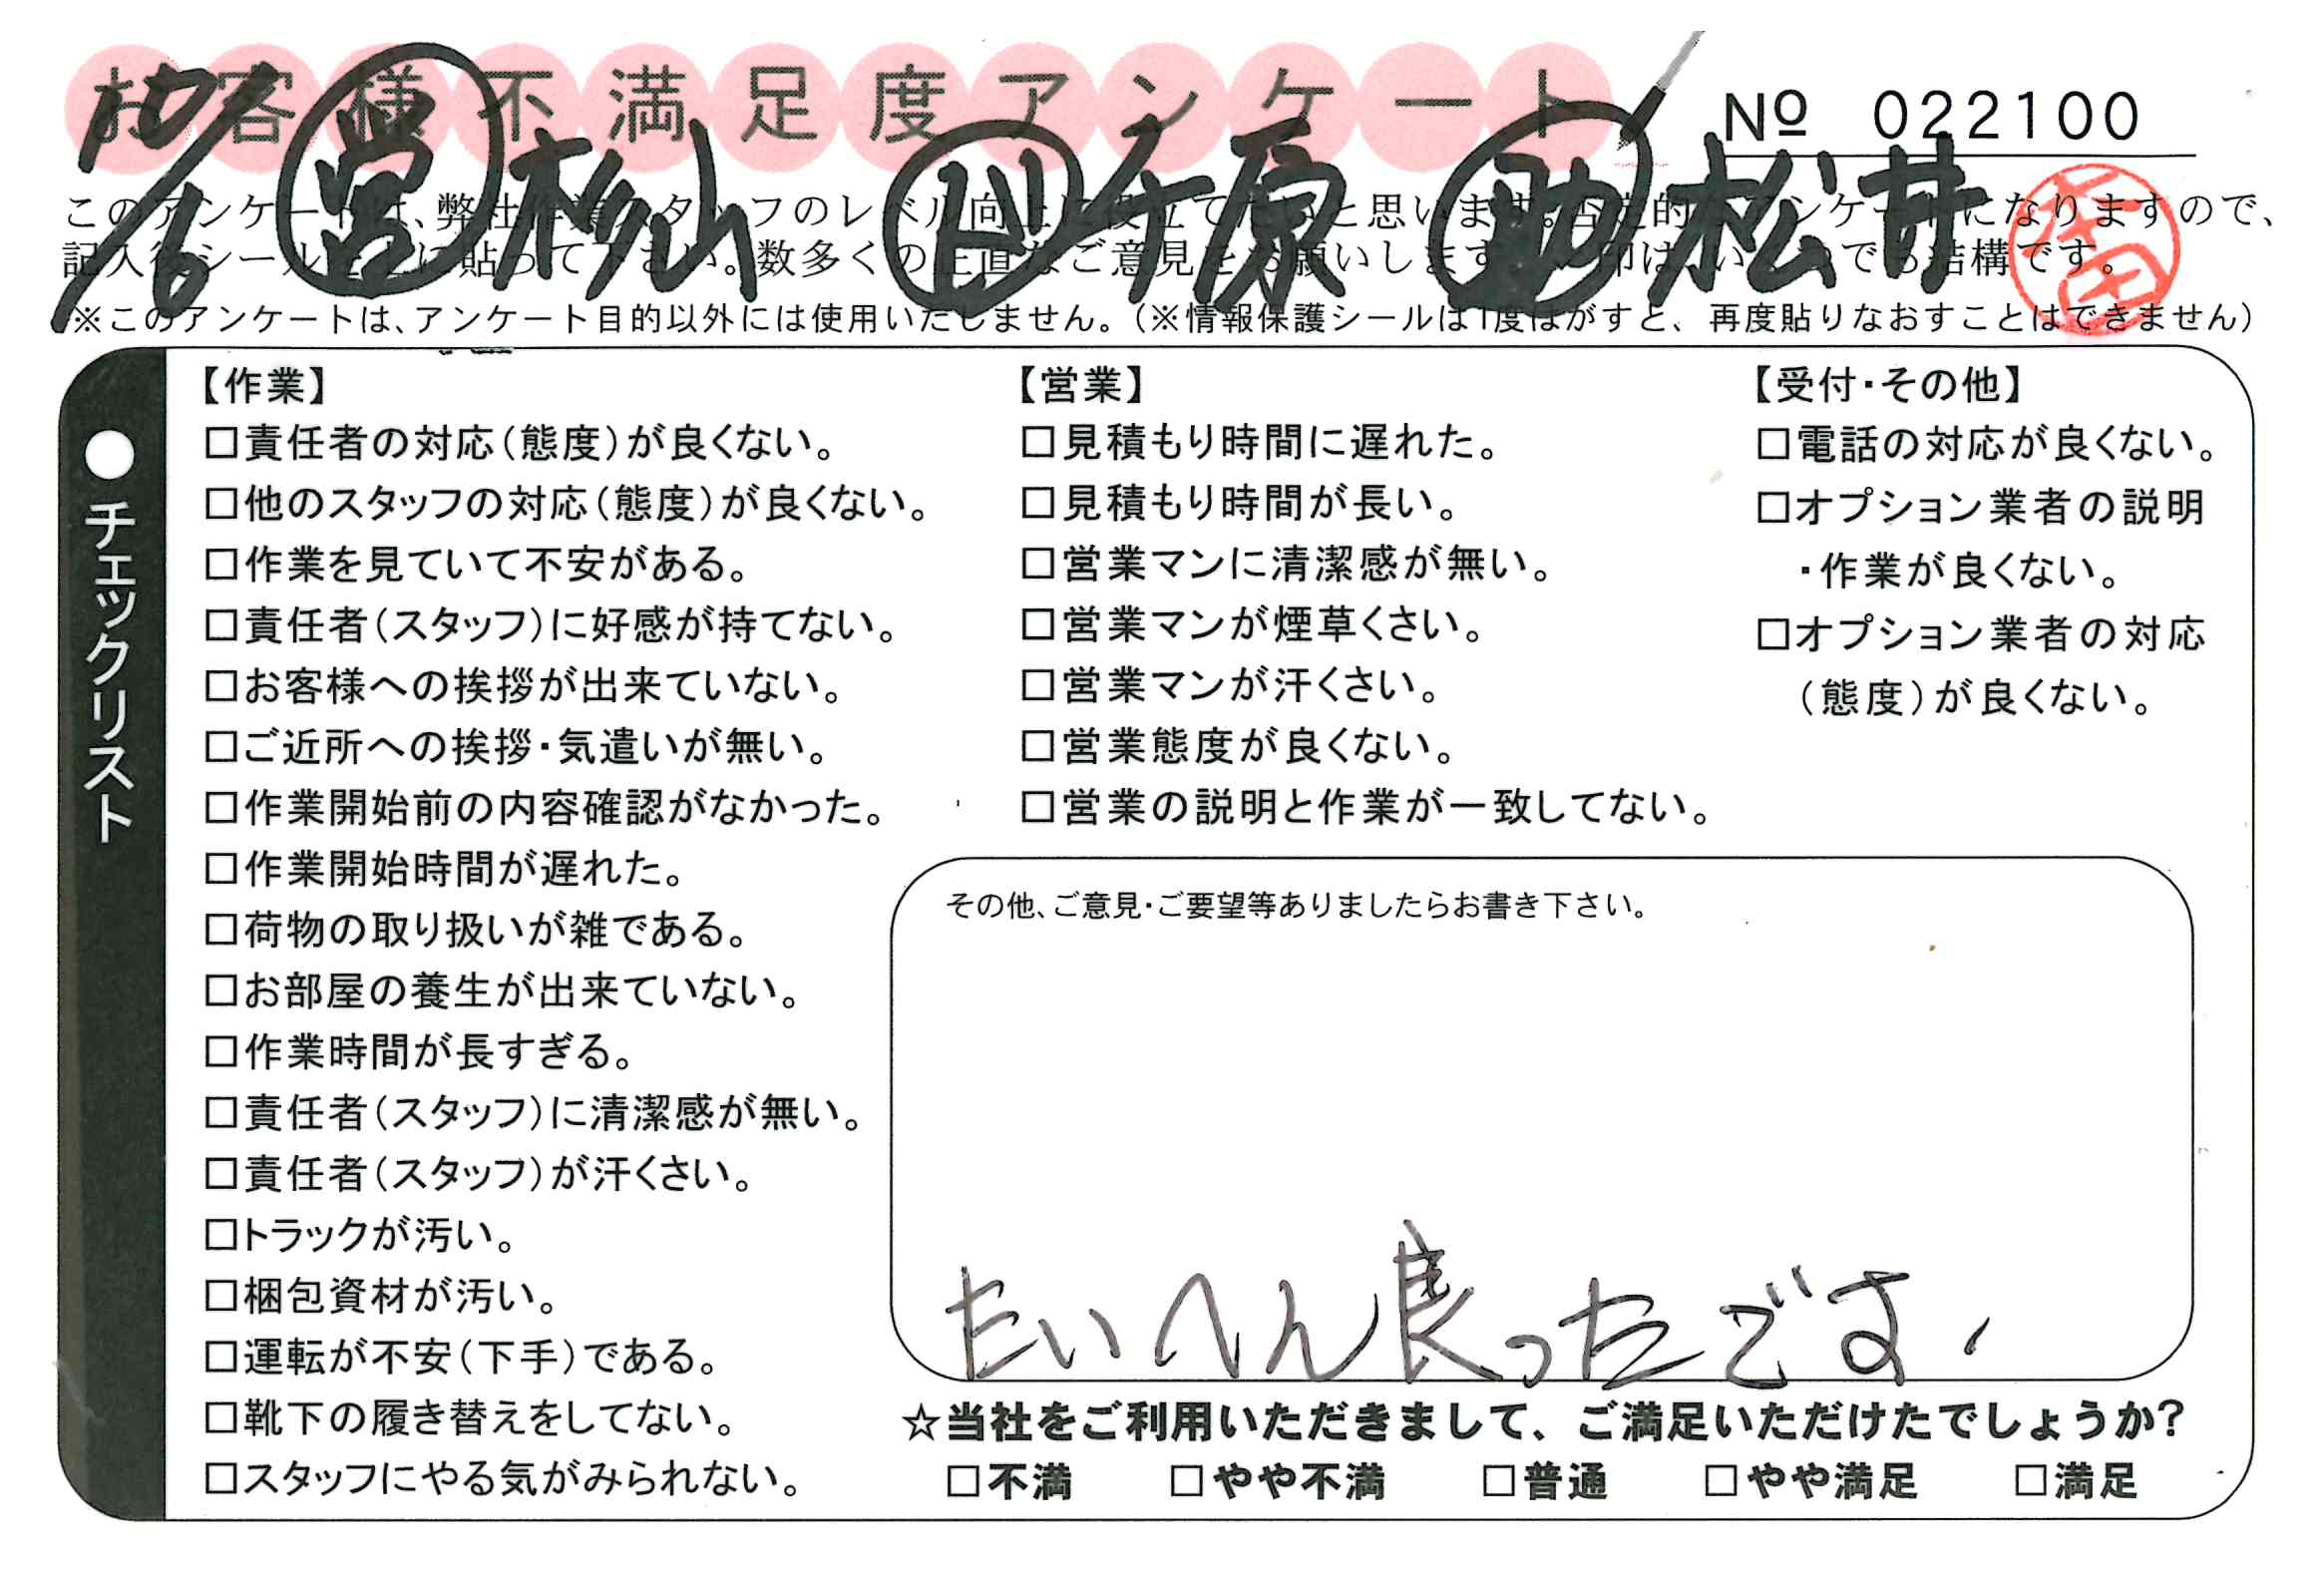 お客様不満足度アンケート
№ 022100
10/6 営 杉山 ド 千原 助 松井
このアンケートは、弊社作業スタッフのレベル向上に役立てたいと思います。否定的なアンケートになりますので、
記入後シールを上に貼って下さい。数多くの正直なご意見をお願いします。
※このアンケートは、アンケート目的以外には使用いたしません。（※情報保護シールは1度はがすと、再度貼りなおすことはできません）
●チェックリスト
【作業】
□責任者の対応（態度）が良くない。
□他のスタッフの対応（態度）が良くない。
□作業を見ていて不安がある。
□責任者（スタッフ）に好感が持てない。
□お客様への挨拶が出来ていない。
□ご近所への挨拶・気遣いが無い。
□作業開始前の内容確認がなかった。
□作業開始時間が遅れた。
□荷物の取り扱いが雑である。
□お部屋の養生が出来ていない。
□作業時間が長すぎる。
□責任者（スタッフ）に清潔感が無い。
□責任者（スタッフ）が汗くさい。
□トラックが汚い。
□梱包資材が汚い。
□運転が不安（下手）である。
□靴下の履き替えをしてない。
□スタッフにやる気がみられない。
【営業】
□見積もり時間に遅れた。
□見積もり時間が長い。
□営業マンに清潔感が無い。
□営業マンが煙草くさい。
□営業マンが汗くさい。
□営業態度が良くない。
□営業の説明と作業が一致してない。
【受付・その他】
□電話の対応が良くない。
□オプション業者の説明
・作業が良くない。
□オプション業者の対応
（態度）が良くない。
その他、ご意見・ご要望等ありましたらお書き下さい。
たいへん良ったです、
☆当社をご利用いただきまして、ご満足いただけたでしょうか？
□不満 □やや不満 □普通 □やや満足 □満足